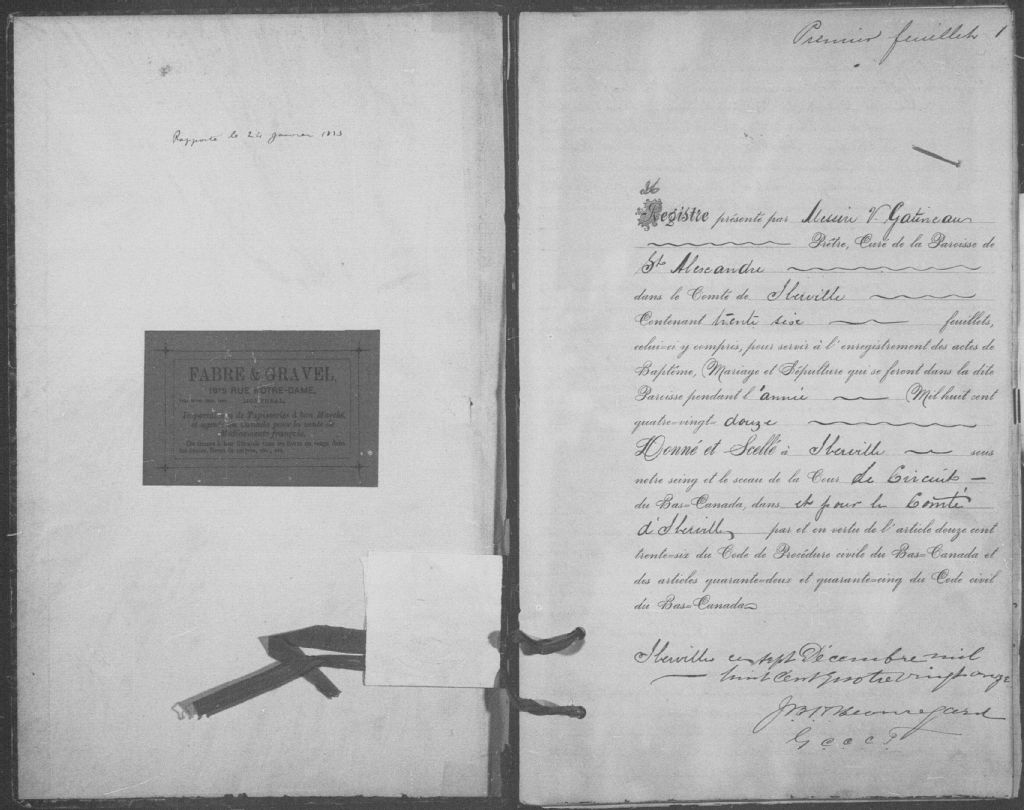 Rapporté le 24 Janvier 1893
FABRE & GRAVEL,
RUE NOTRE-DAME,
MONTREAL.
Importations de Tapisseries à bon Marché,
et agents au Canada pour la vente de
Médicaments français.
Premier feuillet 1
Registre présenté par Messire V. Gatineau
Prêtre, Curé de la Paroisse de
St Alexandre
dans le Comté de Iberville
Contenant trente six feuillets,
celui-ci y compris, pour servir à l'enregistrement des actes de
Baptême, Mariage et Sépulture qui se feront dans la dite
Paroisse pendant l'année Mil huit cent
quatre-vingt douze
Donné et Scellé à Iberville sous
notre seing et le sceau de la Cour de Circuit
du Bas-Canada, dans et pour le Comté
d'Iberville par et en vertu de l'article douze cent
trente-six du Code de Procédure civile du Bas-Canada et
des articles quarante-deux et quarante-cinq du Code civil
du Bas-Canada
Iberville ce sept Décembre mil
huit cent quatre vingt onze
Beauregard
G C C C I